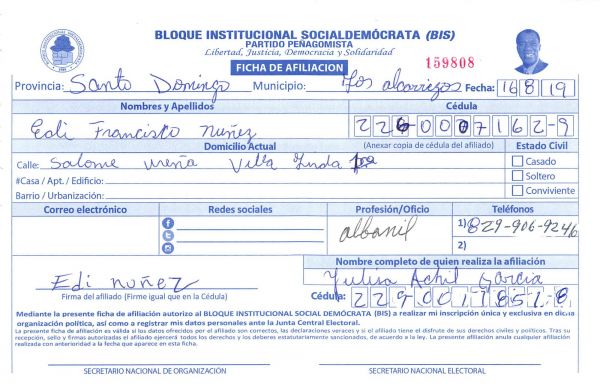 BLOQUE INSTITUCIONAL SOCIALDEMÓCRATA (BIS)
PARTIDO PEÑAGOMISTA
Libertad, Justicia, Democracia y Solidaridad
FICHA DE AFILIACION
159808
Provincia: Santo Domingo Municipio: Los alcarrizos Fecha: 16 8 19
Nombres y Apellidos Cédula
Edi Francisco Nuñez 226-0007162-9
Domicilio Actual (Anexar copia de cédula del afiliado) Estado Civil
Calle: Salome ureña Villa linda Casado
#Casa / Apt. / Edificio: Soltero
Barrio / Urbanización: Conviviente
Correo electrónico Redes sociales Profesión/Oficio Teléfonos
albanil 1) 829-906-9246
2)
Nombre completo de quien realiza la afiliación
Edi nuñez Garcia
Firma del afiliado (Firme igual que en la Cédula) Cédula:
Mediante la presente ficha de afiliación autorizo al BLOQUE INSTITUCIONAL SOCIAL DEMÓCRATA (BIS) a realizar mi inscripción única y exclusiva en dicha
organización política, así como a registrar mis datos personales ante la Junta Central Electoral.
La presente ficha de afiliación es válida si los datos ofrecidos por el afiliado son correctos, las declaraciones veraces y si el afiliado tiene el disfrute de sus derechos civiles y políticos. Tras su
recepción, sello y firmas autorizadas el afiliado ejercerá todos los derechos y los deberes estatutariamente sancionados, de acuerdo a la ley. La presente afiliación anula cualquier afiliación
realizada con anterioridad a la fecha que aparece en esta ficha.
SECRETARIO NACIONAL DE ORGANIZACIÓN SECRETARIO NACIONAL ELECTORAL